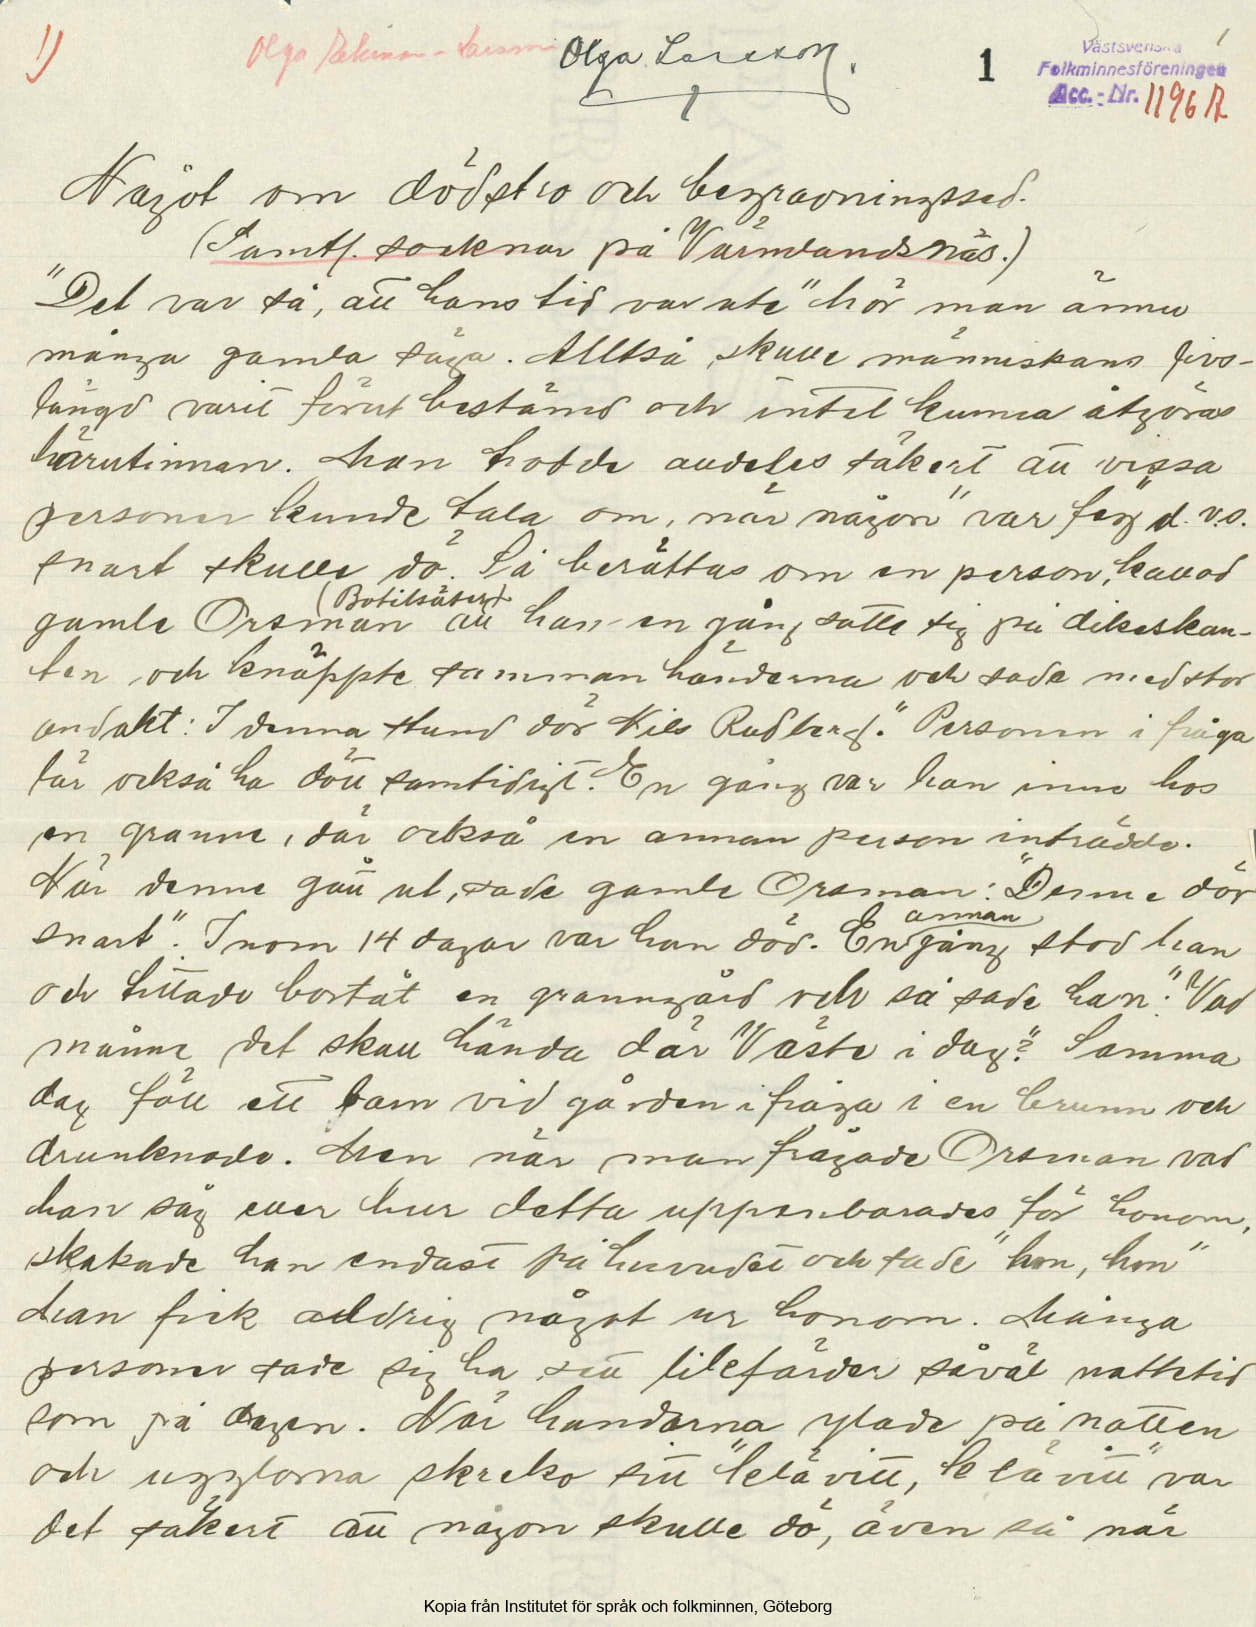 1)
Olga
Olga Larsson.
1
Västsvenska
Folkminnesföreningen
Acc.-Nr. 1196 A
Något om dödstro och begravningssed.
(Samtl. socknar på Värmlandsnäs.)
"Det var så, att hans tid var ute" hör man ännu
många gamla säga. Alltså skulle människans livs-
längd varit förut bestämd och intet kunna åtgöras
härutinnan. Man trodde audeles säkert att vissa
personer kunde tala om, när någon "var feg" d.v.s.
snart skulle dö. Så berättas om en person, kallad
gamle Orsman (Botilsäter) att han en gång satte sig på dikeskan-
ten och knäppte samman händerna och sade med stor
andakt: I denna stund dör Nils Rudberg." Personen i fråga
lär också ha dött samtidigt. En gång var han inne hos
en granne, där också en annan person inträdde.
När denne gått ut, sade gamle Orsman: "Denne dör
snart". Inom 14 dagar var han död. En annan gång stod han
och tittade bortåt en granngård och så sade han: "Vad
månne det skall hända där Väste i dag?" Samma
dag föll ett barn vid gården i fråga i en brunn och
drunknade. Men när man frågade Orsman vad
han såg eller hur detta uppenbarades för honom,
skakade han endast på huvudet och sade "hm, hm"
Man fick aldrig något ur honom. Många
personer sade sig ha sett likfärder såväl nattetid
som på dagen. När hundarna ylade på natten
och ugglorna skreko sitt "klävitt, klävitt" var
det säkert att någon skulle dö, även så när
Kopia från Institutet för språk och folkminnen, Göteborg